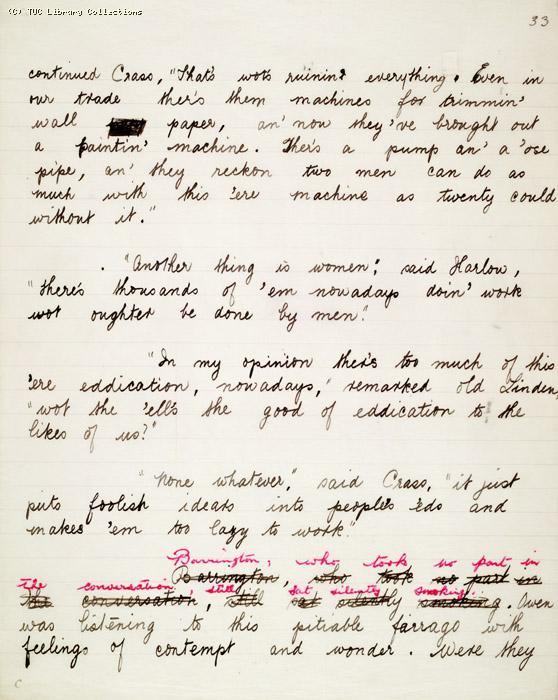 (C) TUC Library Collections
33
continued Crass, "That's wot's ruinin' everything. Even in
our trade ther's them machines for trimmin'
wall paper, an' now they've brought out
a paintin' machine. Ther's a pump an' a 'ose
pipe, an' they reckon two men can do as
much with this 'ere machine as twenty could
without it."
"Another thing is women", said Harlow,
"there's thousands of 'em nowadays doin' work
wot oughter be done by men."
"In my opinion ther's too much of this
'ere eddication, nowadays," remarked old Linden,
"wot the 'ell's the good of eddication to the
likes of us?"
"None whatever," said Crass, "it just
puts foolish idears into people's 'eds and
makes 'em too lazy to work."
Barrington, who took no part in
the conversation, still sat silently smoking.
Barrington, who took no part in
the conversation, still sat silently smoking. Owen
was listening to this pitiable farrago with
feelings of contempt and wonder. Were they
C